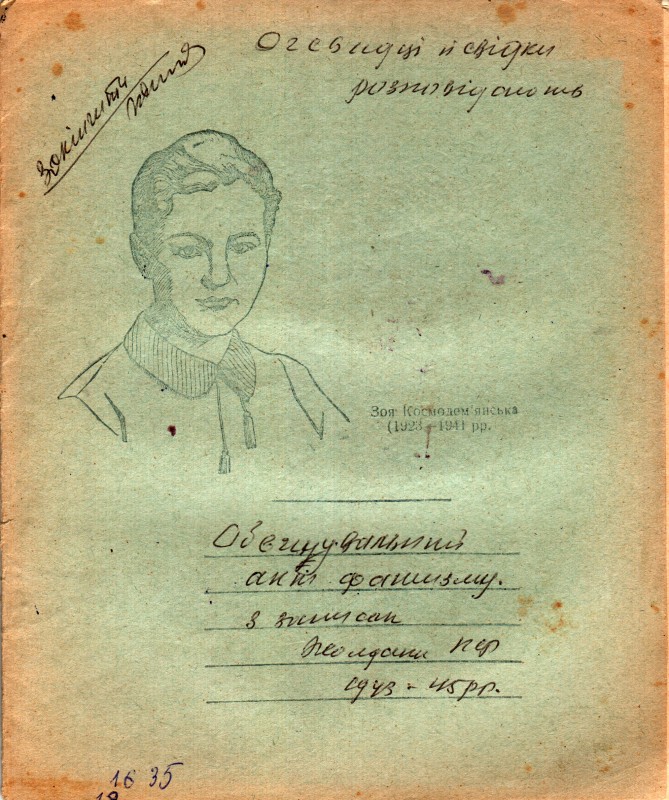 Очевидці й свідки
розповідають
Закінчити
Зоя Космодем'янська
(1923—1941 рр.
Обвинувальний
акт фашизму.
з записок
1943 - 45 рр.
16 35
18